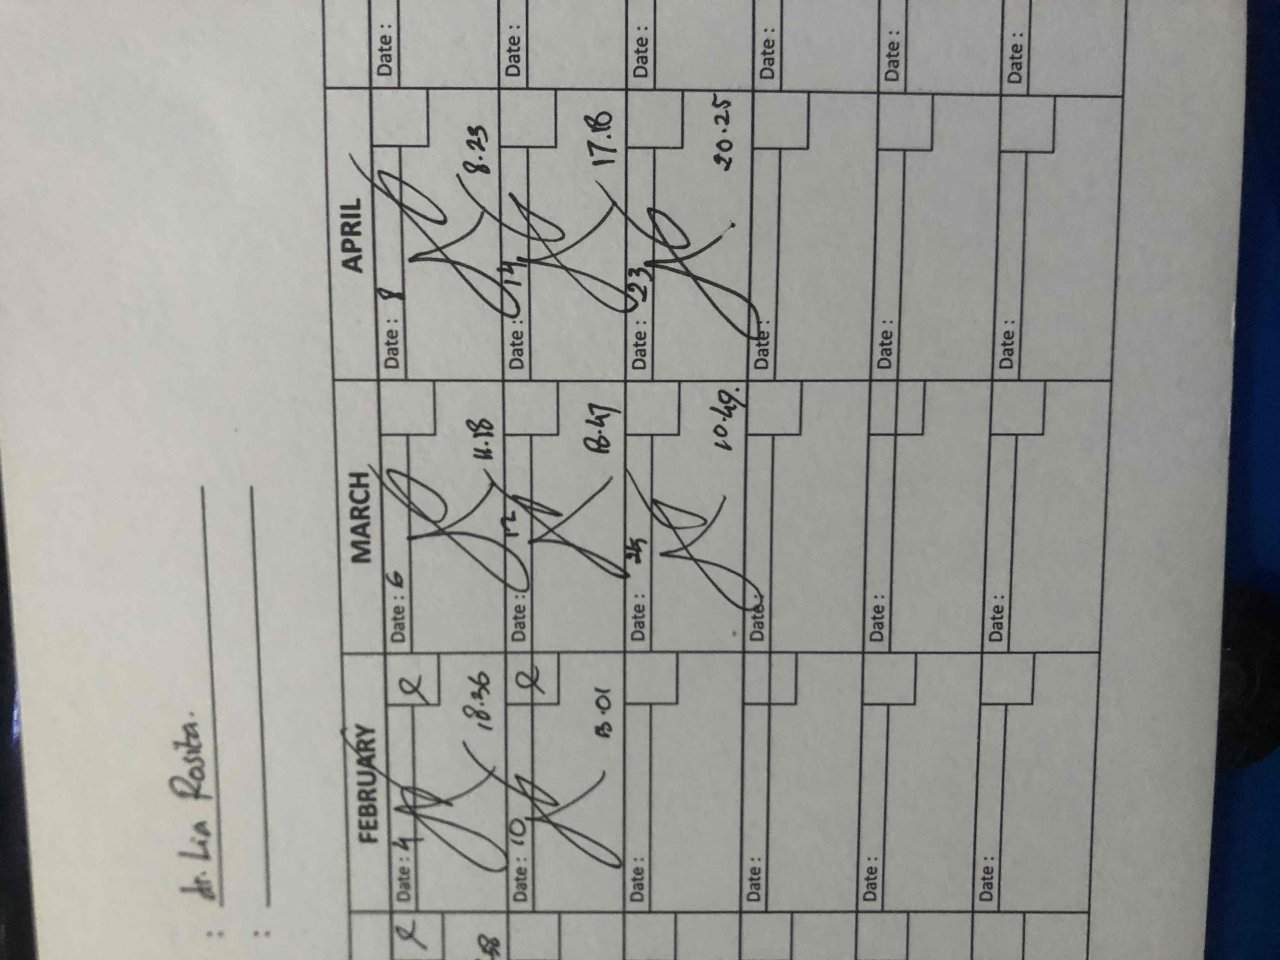 : dr. Lia Rosita.
:
FEBRUARY MARCH APRIL
Date : 4 Date : 6 Date : 8 Date :
18.36 11.18 8.23
Date : 10 Date : 12 Date : 14 Date :
13.01 13.47 17.18
Date : Date : 25 Date : 23 Date :
10.49. 20.25
Date : Date : Date : Date :
Date : Date : Date : Date :
Date : Date : Date : Date :